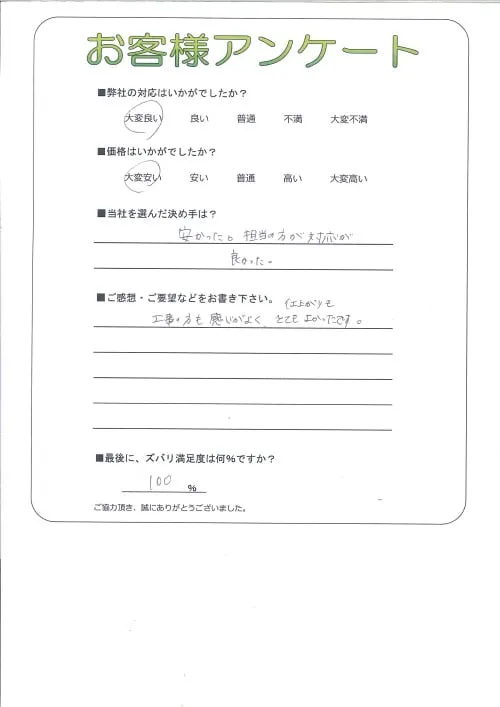 お客様アンケート
■弊社の対応はいかがでしたか？
大変良い 良い 普通 不満 大変不満
■価格はいかがでしたか？
大変安い 安い 普通 高い 大変高い
■当社を選んだ決め手は？
安かったと 担当の方が対応が
良かった。
■ご感想・ご要望などをお書き下さい。
仕上がりも
工事の方も感じがよく、とてもよかったです。
■最後に、ズバリ満足度は何％ですか？
100 %
ご協力頂き、誠にありがとうございました。